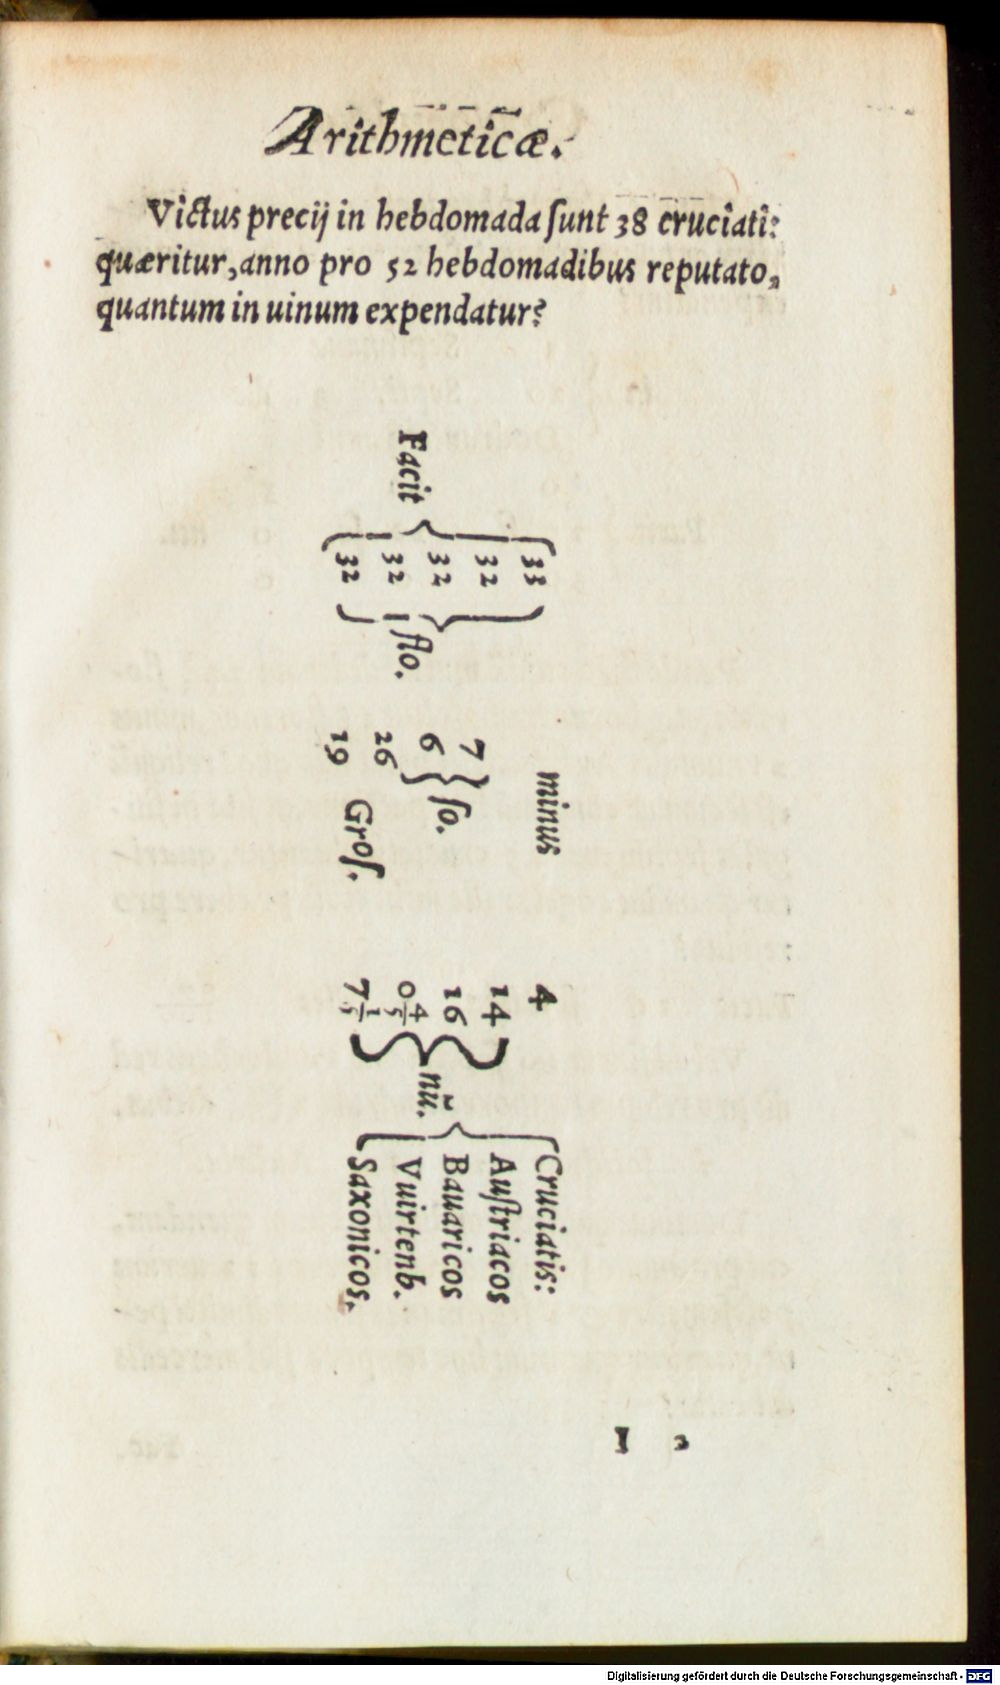 Arithmeticæ.
Victus precij in hebdomada ſunt 38 cruciati:
quæritur, anno pro 52 hebdomadibus reputato,
quantum in uinum expendatur?
33 minus 4 Cruciatis:
32 7 14 Auſtriacos
Facit 32 flo. 6 ſo. 16 nũ. Bauaricos
32 26 0 4/5 Vuirtenb.
32 19 Groſ. 7 1/5 Saxonicos,
I 2
Digitalisierung gefördert durch die Deutsche Forschungsgemeinschaft - DFG